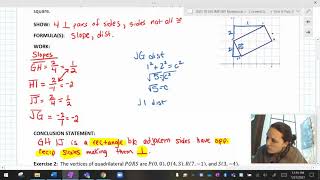 square.
SHOW: 4 ⊥ pairs of sides, sides not all ≅
FORMULA(S): slope, dist.
WORK:
Slopes
GH = 2/4 = 1/2
HI = 2/-1 = -2
IJ = 2/4 = 1/2
JG = -2/1 = -2
JG dist
1² + 2² = c²
√5 = c²
√5 = c
JI dist
CONCLUSION STATEMENT:
GHIJ is a rectangle b/c adjacent sides have opp.
recip slopes making them ⊥.
Exercise 2: The vertices of quadrilateral PQRS are P(0,0), Q(4,3), R(7,-1), and S(3,-4).